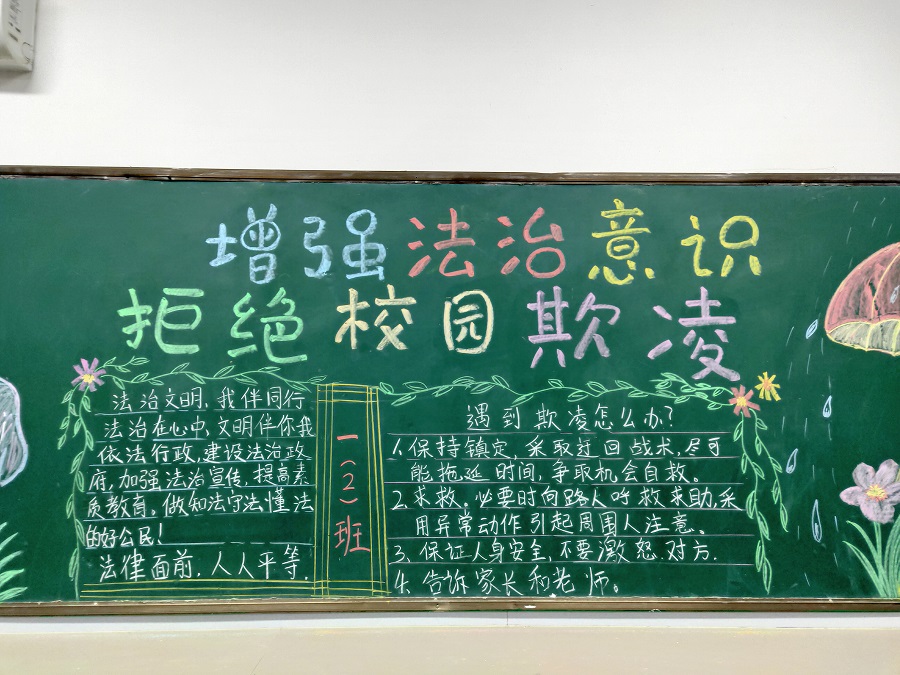 增强法治意识
拒绝校园欺凌
法治文明,我伴同行
法治在心中,文明伴你我
依法行政,建设法治政
府,加强法治宣传,提高素
质教育。做知法守法懂法
的好公民!
法律面前,人人平等.
一(2)班
遇到欺凌怎么办?
1.保持镇定,采取迂回战术,尽可
能拖延时间,争取机会自救。
2.求救,必要时向路人呼救求助,采
用异常动作引起周围人注意。
3.保证人身安全,不要激怒对方.
4.告诉家长和老师。